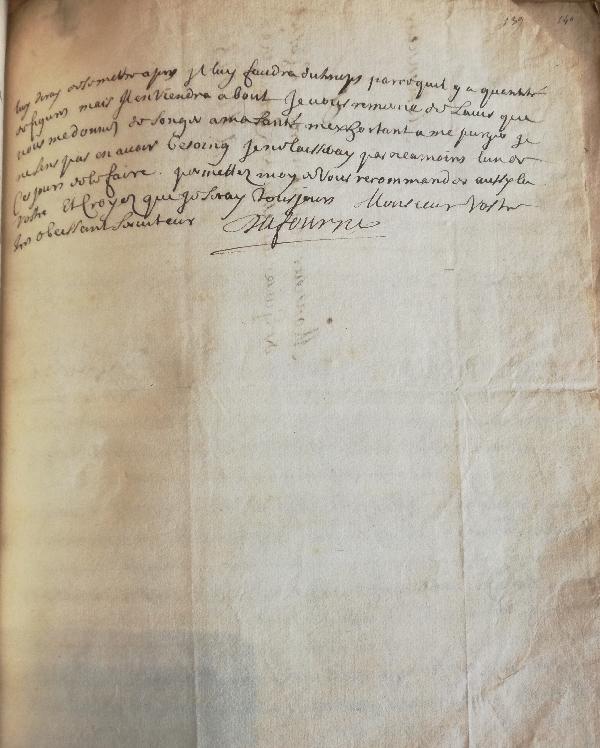 139 140
luy feray se mettre apres Il luy faudra du temps parce quil y a quantité
de figures mais Il en viendra a bout Je vous remercie de L'avis que
vous me donnez de songer a ma santé mexhortant a me purger je
ne sens pas en avoir besoing Je ne laisseray pas neamoins lun de
ces jours de le faire. permettez moy de Vous recommander aussy la
Vostre Et Croyez que je seray tousjours Monsieur Vostre
tres obeissant serviteur Dufourni